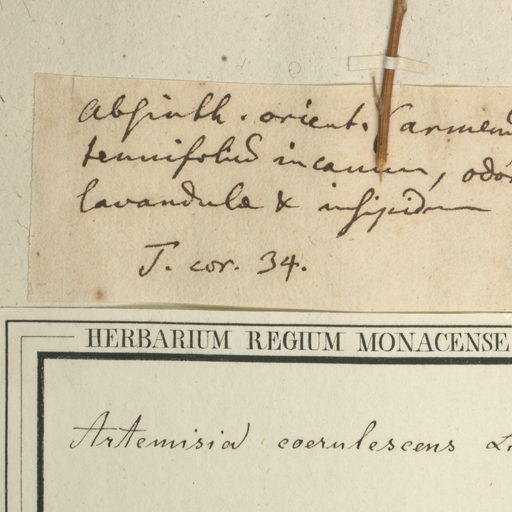 Absinth. orient. (armen
tenuifoliũ incanum, odor
lavandulæ & insipidum
T. cor. 34.
HERBARIUM REGIUM MONACENSE
Artemisia coerulescens L.